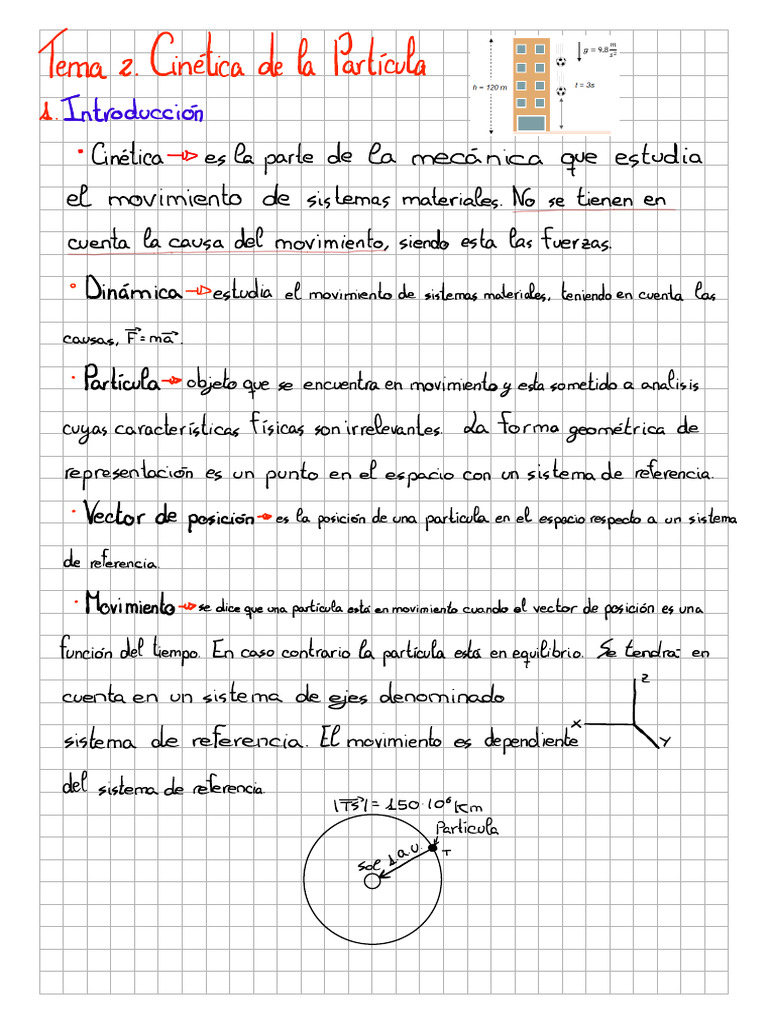 Tema 2. Cinética de la Partícula
h = 120 m
g = 9,8 m/s²
t = 3s
1. Introducción
• Cinética → es la parte de la mecánica que estudia
el movimiento de sistemas materiales. No se tienen en
cuenta la causa del movimiento, siendo esta las fuerzas.
• Dinámica → estudia el movimiento de sistemas materiales, teniendo en cuenta las
causas, F⃗=ma⃗.
• Partícula → objeto que se encuentra en movimiento y esta sometido a analisis
cuyas características físicas son irrelevantes. La forma geométrica de
representación es un punto en el espacio con un sistema de referencia.
• Vector de posición → es la posición de una partícula en el espacio respecto a un sistema
de referencia.
• Movimiento → se dice que una partícula está en movimiento cuando el vector de posición es una
función del tiempo. En caso contrario la partícula está en equilibrio. Se tendrá en
cuenta en un sistema de ejes denominado
sistema de referencia. El movimiento es dependiente
del sistema de referencia.
Z
X
Y
|TS⃗| = 150·10⁶ Km
Partícula
Sol
1 a.u.
T